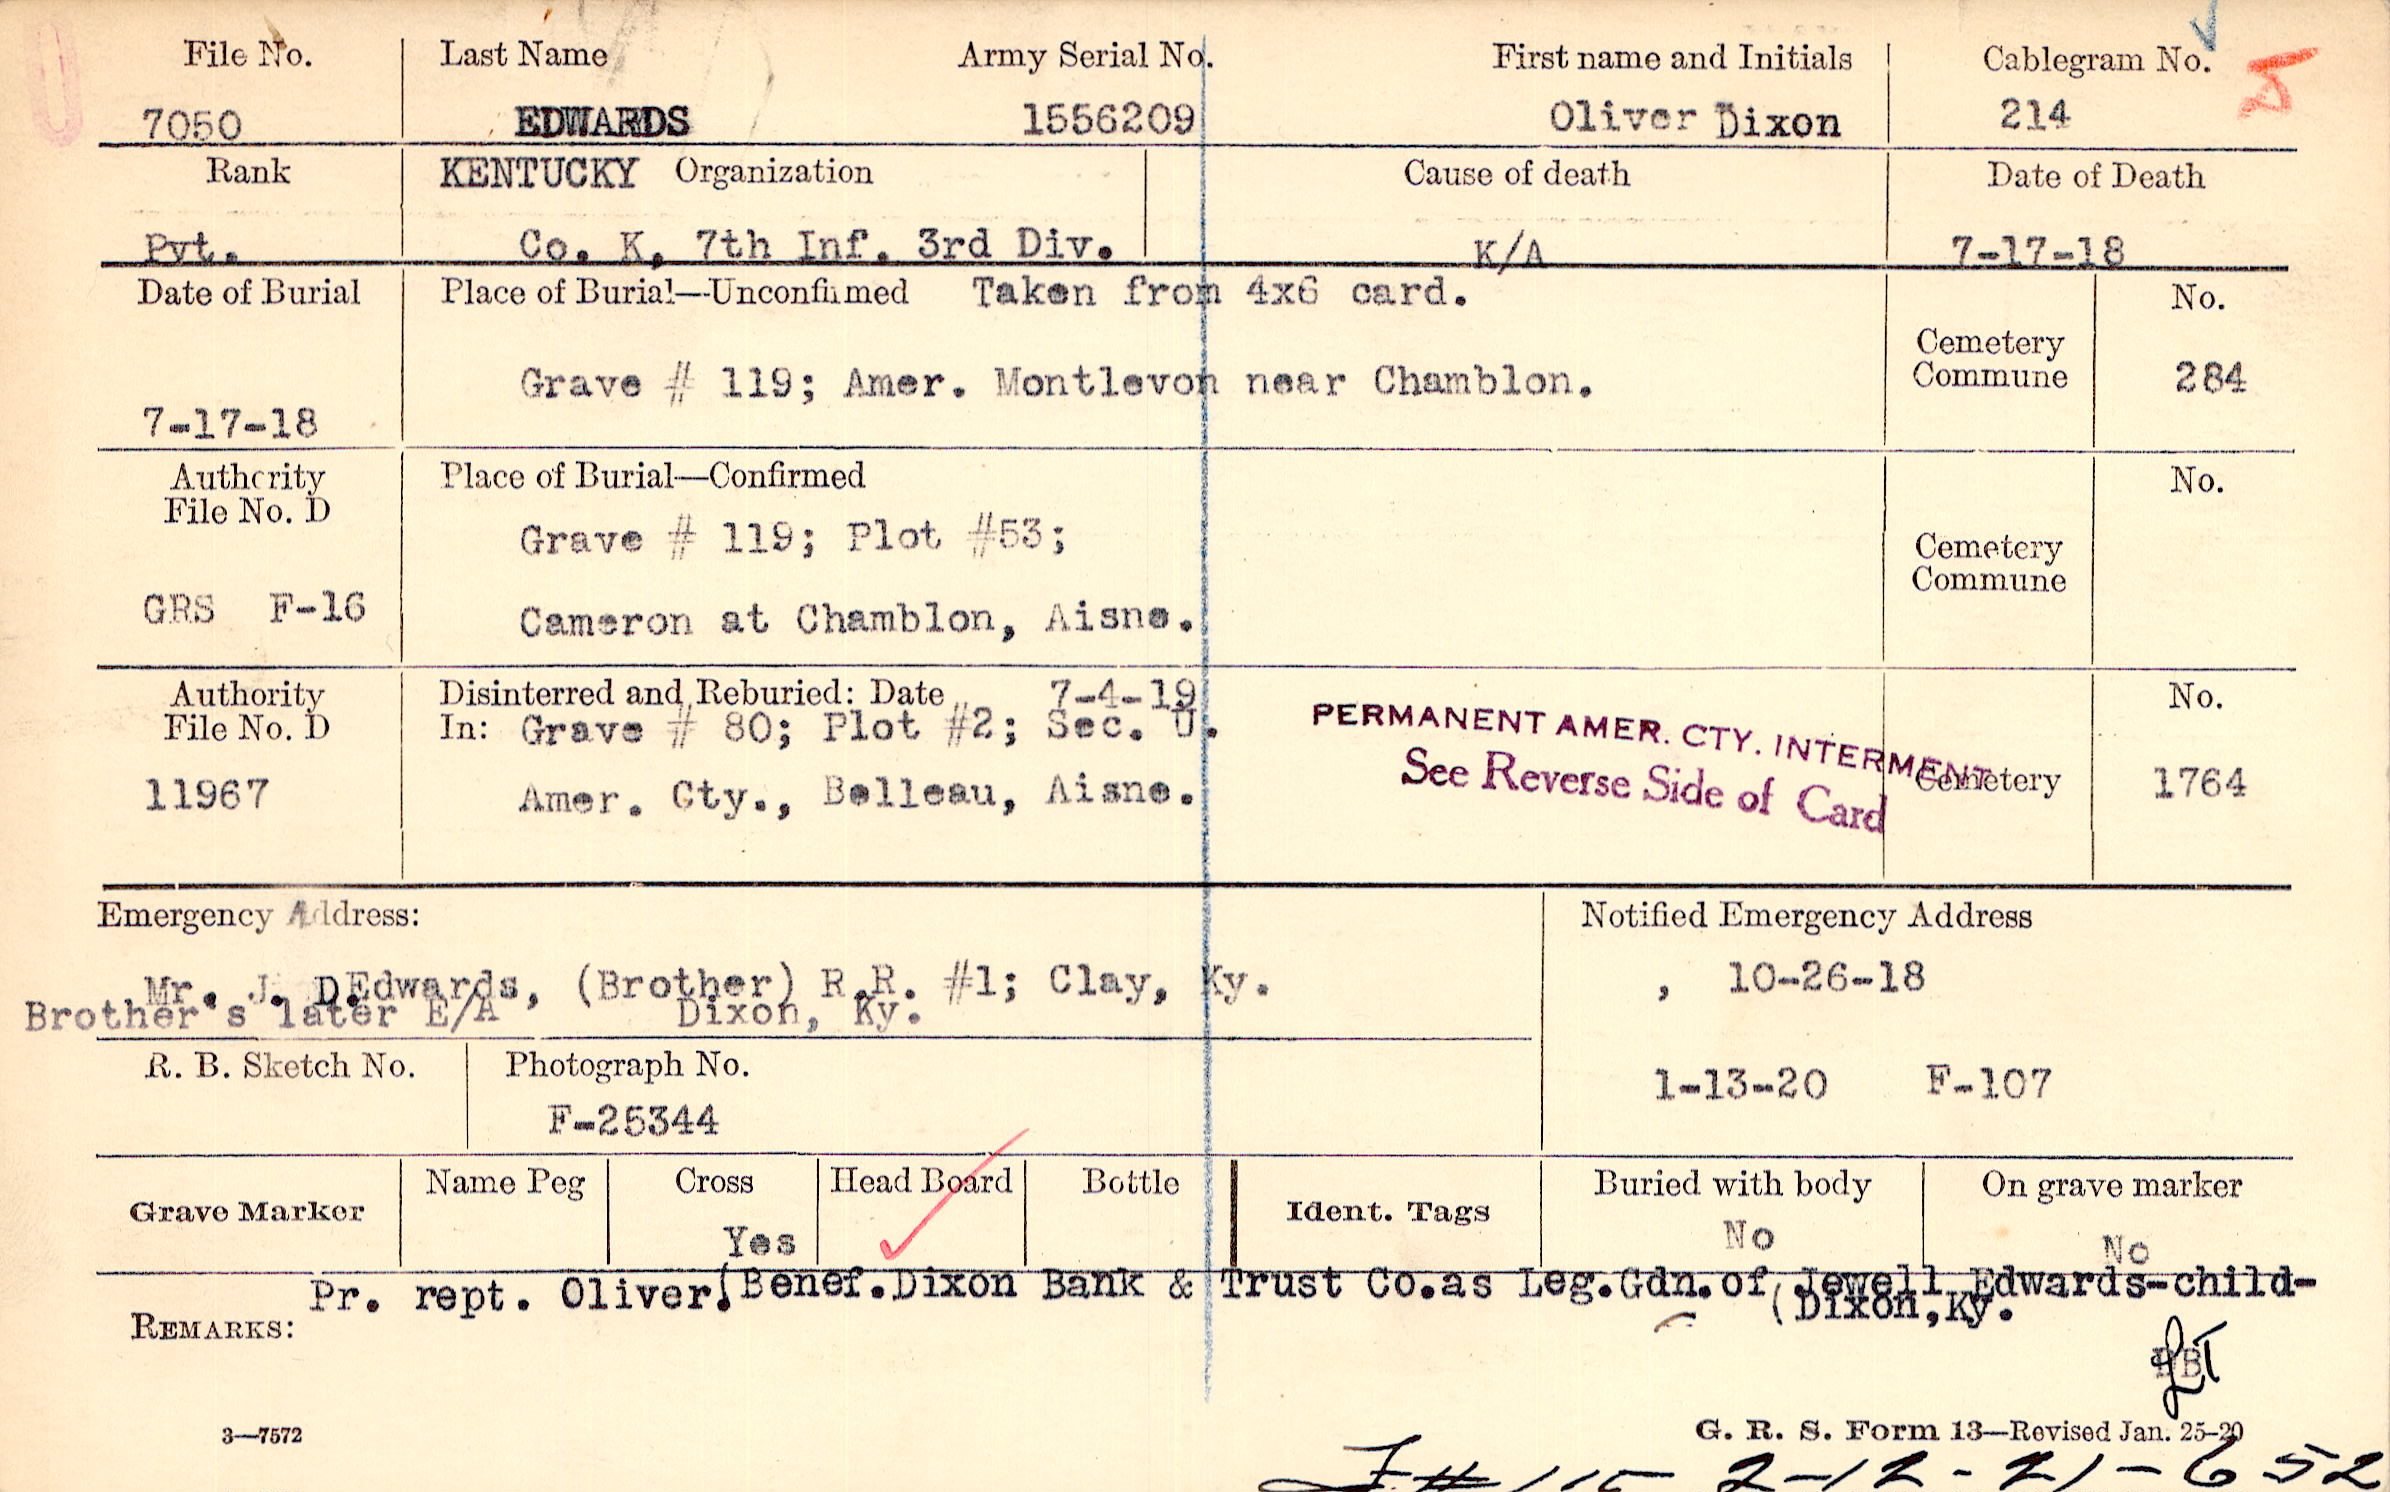 File No. Last Name Army Serial No. First name and Initials Cablegram No. 5
7050 EDWARDS 1556209 Oliver Dixon 214
Rank KENTUCKY Organization Cause of death Date of Death
Pvt. Co. K, 7th Inf. 3rd Div. K/A 7-17-18
Date of Burial Place of Burial—Unconfirmed Taken from 4x6 card. No.
Grave # 119; Amer. Montlevon near Chamblon. Cemetery Commune 284
7-17-18
Authority File No. D Place of Burial—Confirmed No.
Grave # 119; Plot #53; Cemetery Commune
GRS F-16 Cameron at Chamblon, Aisne.
Authority Disinterred and Reburied: Date 7-4-19 No.
File No. D In: Grave # 80; Plot #2; Sec. U. PERMANENT AMER. CTY. INTERMENT
11967 Amer. Cty., Belleau, Aisne. See Reverse Side of Card Cemetery 1764
Emergency Address: Notified Emergency Address
Mr. J. D. Edwards, (Brother) R.R. #1; Clay, Ky. , 10-26-18
Brother's later E/A Dixon, Ky.
R. B. Sketch No. Photograph No. 1-13-20 F-107
F-25344
Grave Marker Name Peg Cross Head Board Bottle Ident. Tags Buried with body On grave marker
Yes No No
Pr. rept. Oliver. (Benef.Dixon Bank & Trust Co.as Leg.Gdn.of Jewell Edwards-child-
REMARKS: (Dixon,Ky.
3—7572 G. R. S. Form 13—Revised Jan. 25-20
2-12-21-652